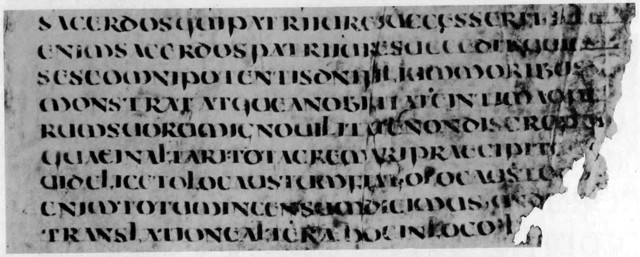 SACERDOSQUIPATRIIURESUCCESSERIT
ENIMSACERDOSPATRIIURESUCCEDITQUI
SESEOMNIPOTENTISDNIFILIUMMORIBUS
MONSTRATATQUEANOBILITATEINTIMA
RUMSUORUMIGNOUILITATENONDISCREPAT
QUAEINALTARITOTACREMARIPRAECIPIT
UIDELICETOLOCAUSTUMFIATOLOCAUSTU
ENIMTOTUMINCENSUMDICIMUS
TRANSLATIONEALTERAHOCINLOCO